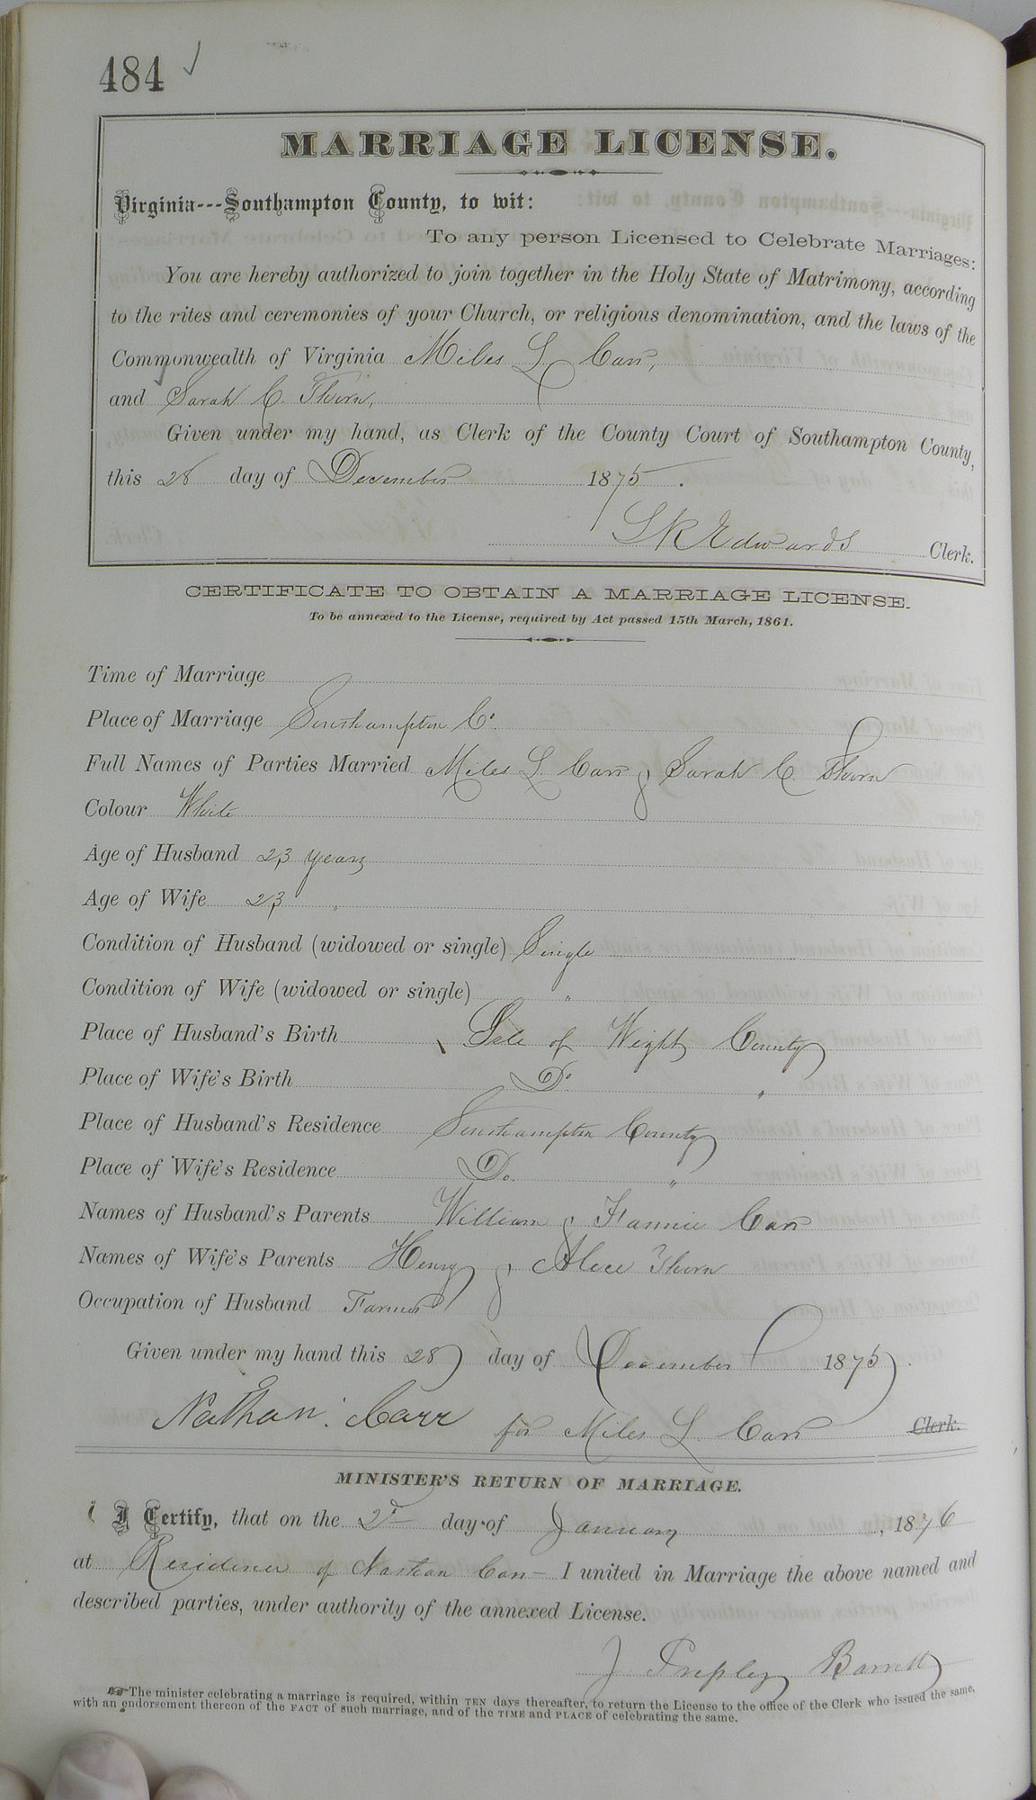 484 ✓
MARRIAGE LICENSE.
Virginia---Southampton County, to wit:
To any person Licensed to Celebrate Marriages:
You are hereby authorized to join together in the Holy State of Matrimony, according
to the rites and ceremonies of your Church, or religious denomination, and the laws of the
Commonwealth of Virginia Miles L. Carr,
and Sarah C. Thorn,
Given under my hand, as Clerk of the County Court of Southampton County,
this 28 day of December 1875.
L R Edwards Clerk.
CERTIFICATE TO OBTAIN A MARRIAGE LICENSE.
To be annexed to the License, required by Act passed 15th March, 1861.
Time of Marriage
Place of Marriage Southampton Co.
Full Names of Parties Married Miles L. Carr & Sarah C. Thorn
Colour White
Age of Husband 23 years
Age of Wife 23 "
Condition of Husband (widowed or single) Single
Condition of Wife (widowed or single) "
Place of Husband's Birth Isle of Wight County
Place of Wife's Birth Do "
Place of Husband's Residence Southampton County
Place of Wife's Residence Do. "
Names of Husband's Parents William & Fannie Carr
Names of Wife's Parents Henry & Alice Thorn
Occupation of Husband Farmer
Given under my hand this 28 day of December 1875.
Nathan Carr for Miles L. Carr Clerk.
MINISTER'S RETURN OF MARRIAGE.
I Certify, that on the 2d day of January, 1876
at Residence of Nathan Carr I united in Marriage the above named and
described parties, under authority of the annexed License.
J Tripley Barrett
The minister celebrating a marriage is required, within TEN days thereafter, to return the License to the office of the Clerk who issued the same,
with an endorsement thereon of the FACT of such marriage, and of the TIME and PLACE of celebrating the same.